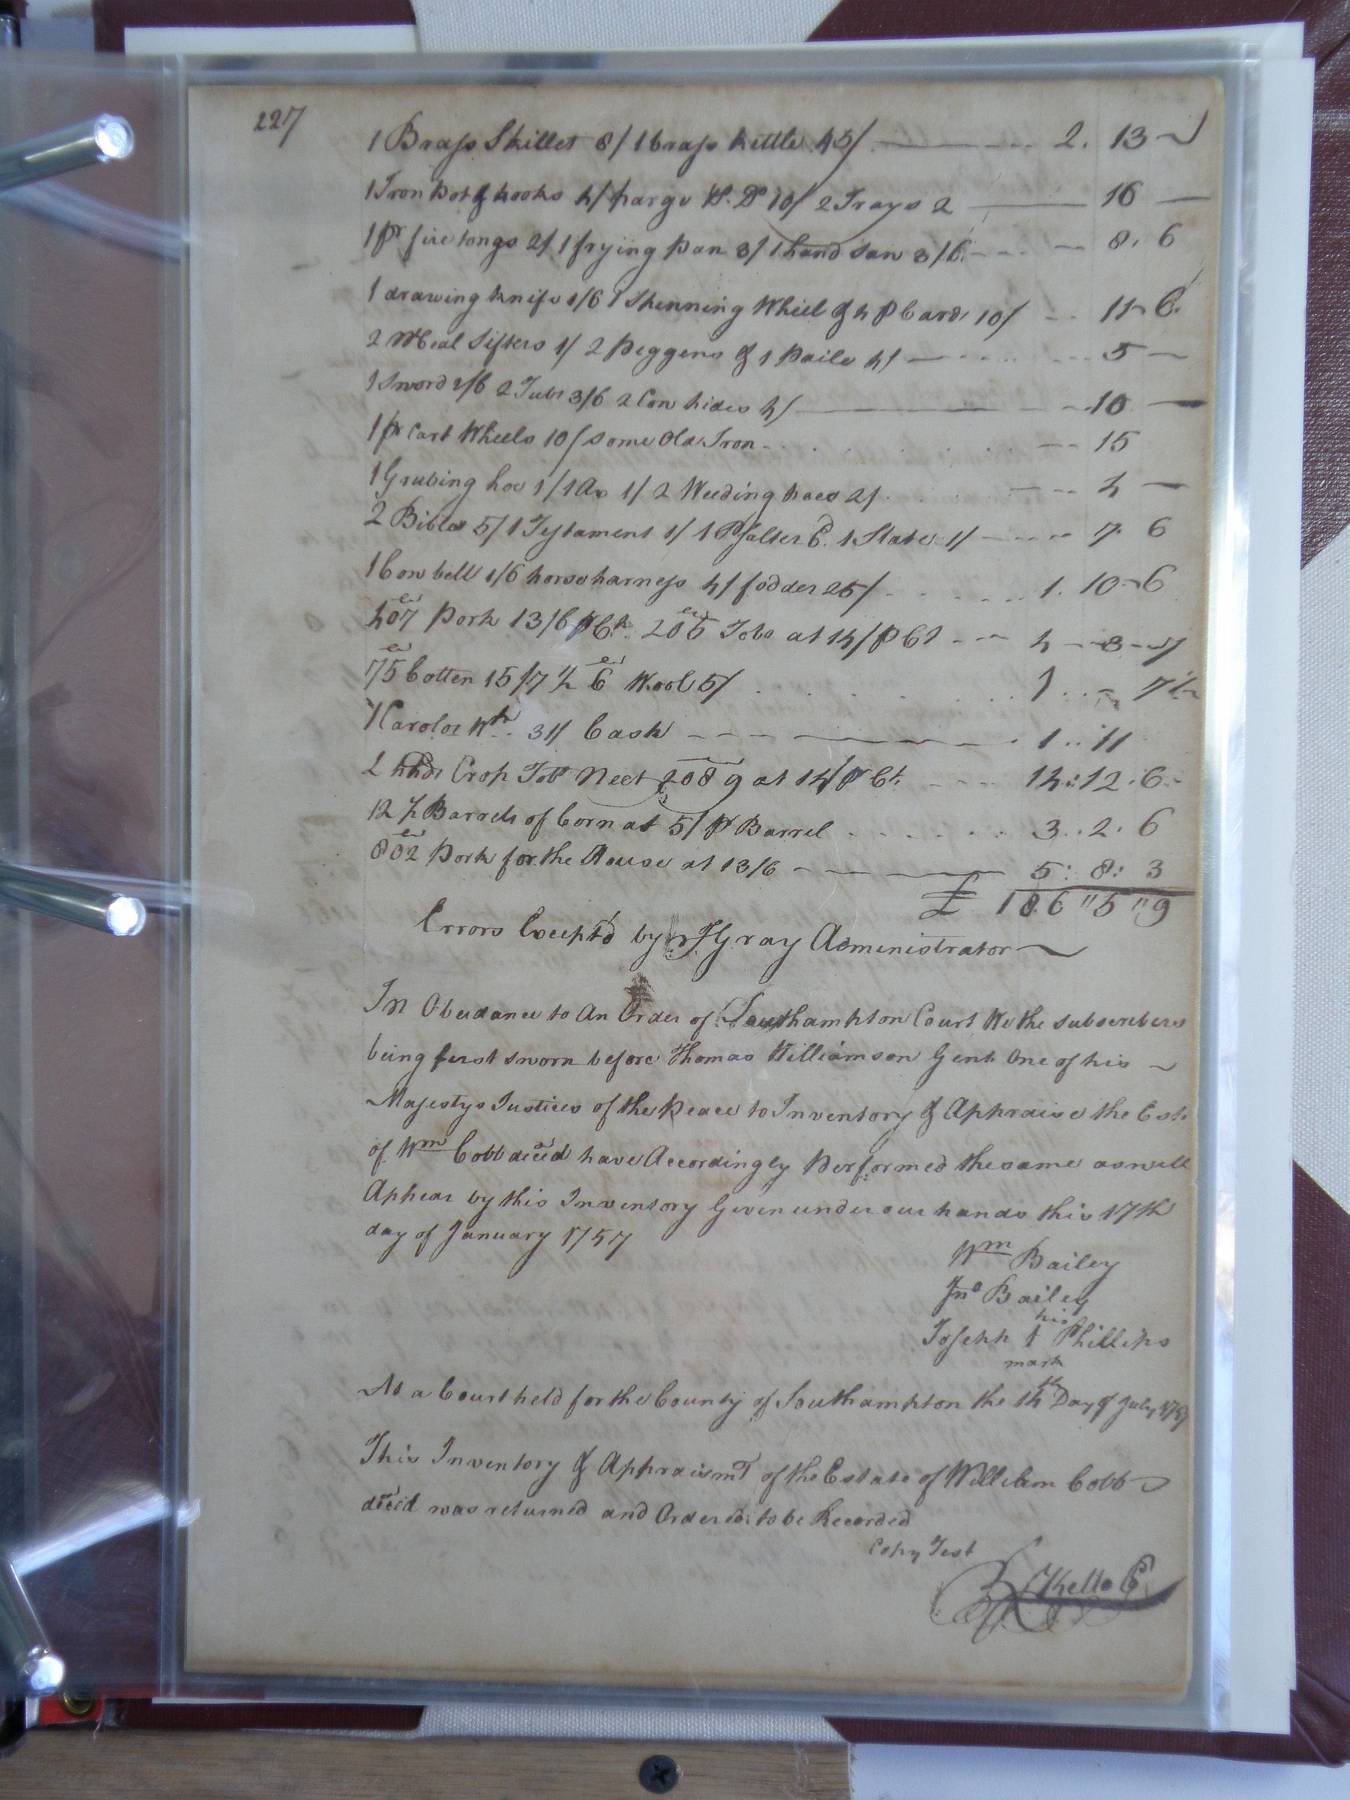 227
1 Brass Skillet 8/ 1 brass kettle 45/ 2. 13 -
1 Iron Pot & hooks 4/ 10/ 2 Trays 2 16 -
1 pr fire tongs 2/ 1 frying Pan 3/ 1 hand saw 3/6 8. 6
1 drawing knife 1/6 1 Spinning Wheel & 4 p Cards 10/ 11 - 6.
2 Meal Sifters 1/ 2 Peggens & 1 Paile 4/ 5 -
1 Sword 2/6 2 Tubs 3/6 2 Cow hides 4/ 10 -
1 pr Cart Wheels 10/ some Old Iron 15
1 Grubing hoe 1/ 1 Ax 1/ 2 Weeding hoes 2/ 4 -
2 Bibles 5/ 1 Testament 1/ 1 Psalter 6. 1 Slate 1/ 7. 6
1 Cow bell 1/6 horse harness 4/ fodder 25/ 1. 10 - 6
407 Pork 13/6 p Ct. 205 Tobo at 14/ p Ct 4 - 3 - 7
75 Cotten 15/7 ½ 6 Wool 5/ 1 .. - 7½
Wt. 31/ Cash 1 .. 11
2 hhds Crop Tobo Neet 2089 at 14/ p Ct. 14 : 12 . 6 -
12 ½ Barrels of Corn at 5/ pr Barrel 3 .. 2 . 6
802 Pork for the House at 13/6 5 : 8 : 3
£ 186 " 5 " 9
Errors Except'd by Gray Administrator
In Obeidance to An Order of Southampton Court We the subscribers
being first sworn before Thomas Williamson Gent One of his
Majestys Justices of the Peace to Inventory & Appraise the Est.
of Wm Cobb deced have Accordingly Performed the same as will
Appear by this Inventory Given under our hands this 17th
day of January 1757
Wm Bailey
Jno Bailey
his
Joseph Phillips
mark
At a Court held for the County of Southampton the 14th Day of July 1757
This Inventory & Appraismt of the Estate of William Cobb
deced was returned and Ordered to be Recorded
Copy Test
R Kello C